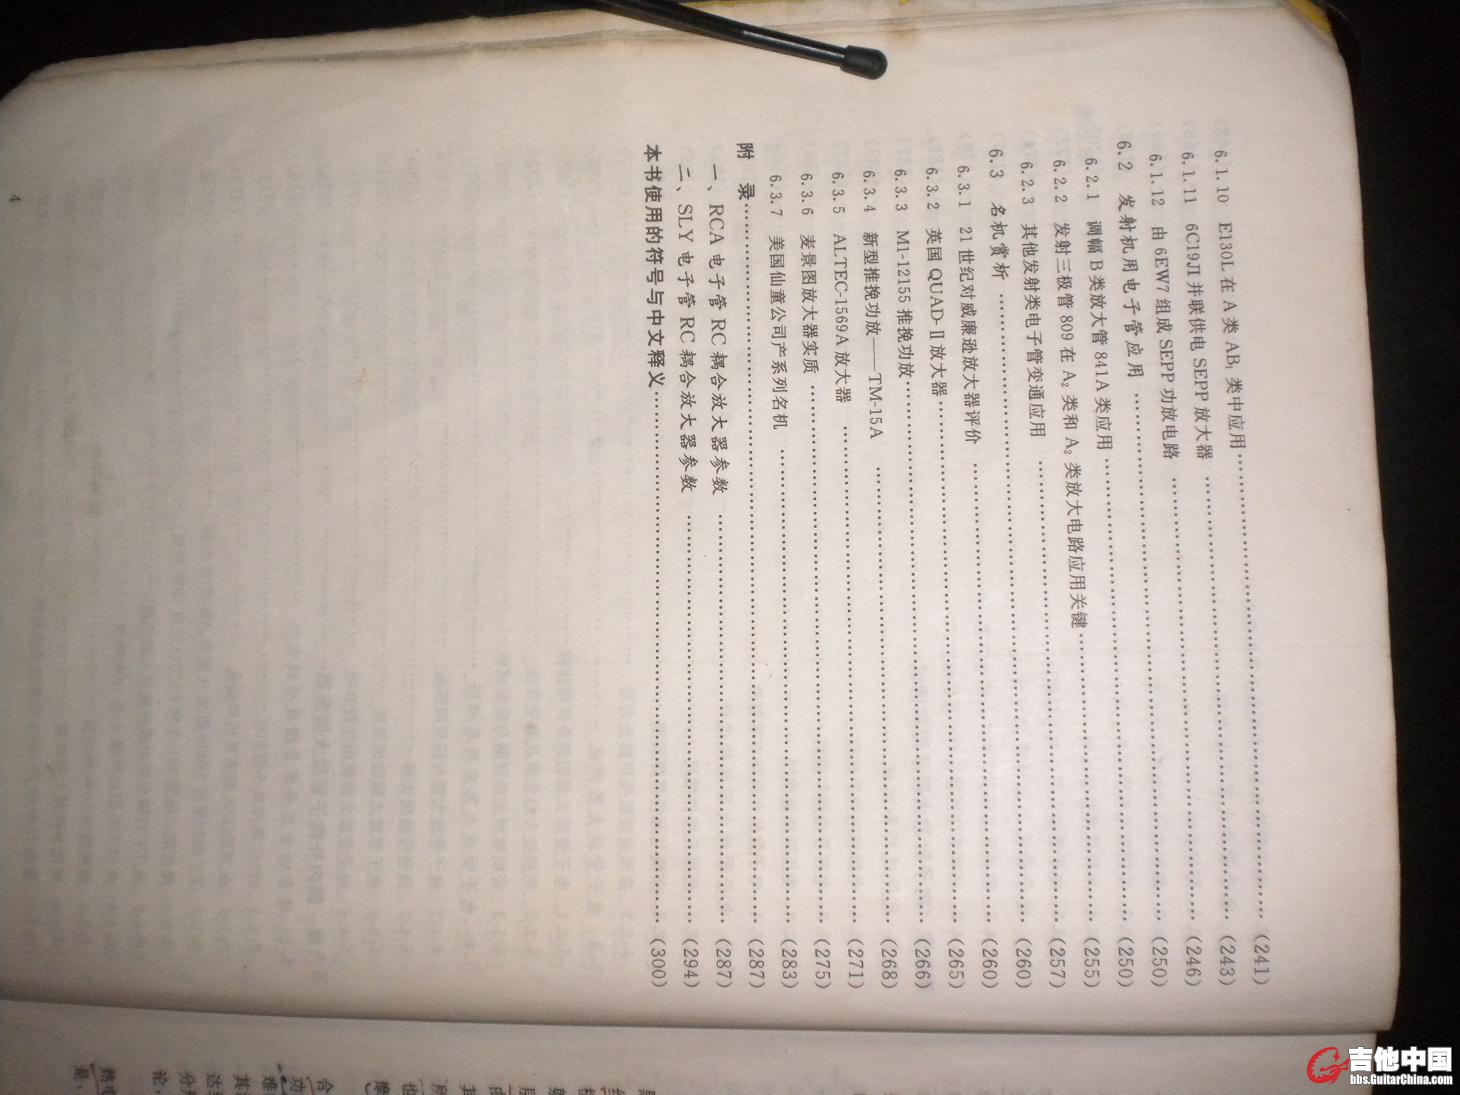 6.1.10 E130L 在 A 类 AB₁ 类中应用……(241)
6.1.11 6C19JI 并联供电 SEPP 放大器……(243)
6.1.12 由 6EW7 组成 SEPP 功放电路……(246)
6.2 发射机用电子管应用……(250)
6.2.1 调幅 B 类放大管 841A 类应用……(250)
6.2.2 发射三极管 809 在 A₂ 类和 A₂ 类放大电路应用关键……(255)
6.2.3 其他发射类电子管变通应用……(257)
6.3 名机赏析……(260)
6.3.1 21 世纪对威廉逊放大器评价……(260)
6.3.2 英国 QUAD-Ⅱ 放大器……(265)
6.3.3 M1-12155 推挽功放……(266)
6.3.4 新型推挽功放——TM-15A……(268)
6.3.5 ALTEC-1569A 放大器……(271)
6.3.6 麦景图放大器实质……(275)
6.3.7 美国仙童公司产系列名机……(283)
附 录……(287)
一、RCA 电子管 RC 耦合放大器参数……(287)
二、SLY 电子管 RC 耦合放大器参数……(294)
本书使用的符号与中文释义……(300)
4
吉他中国
bbs.GuitarChina.com